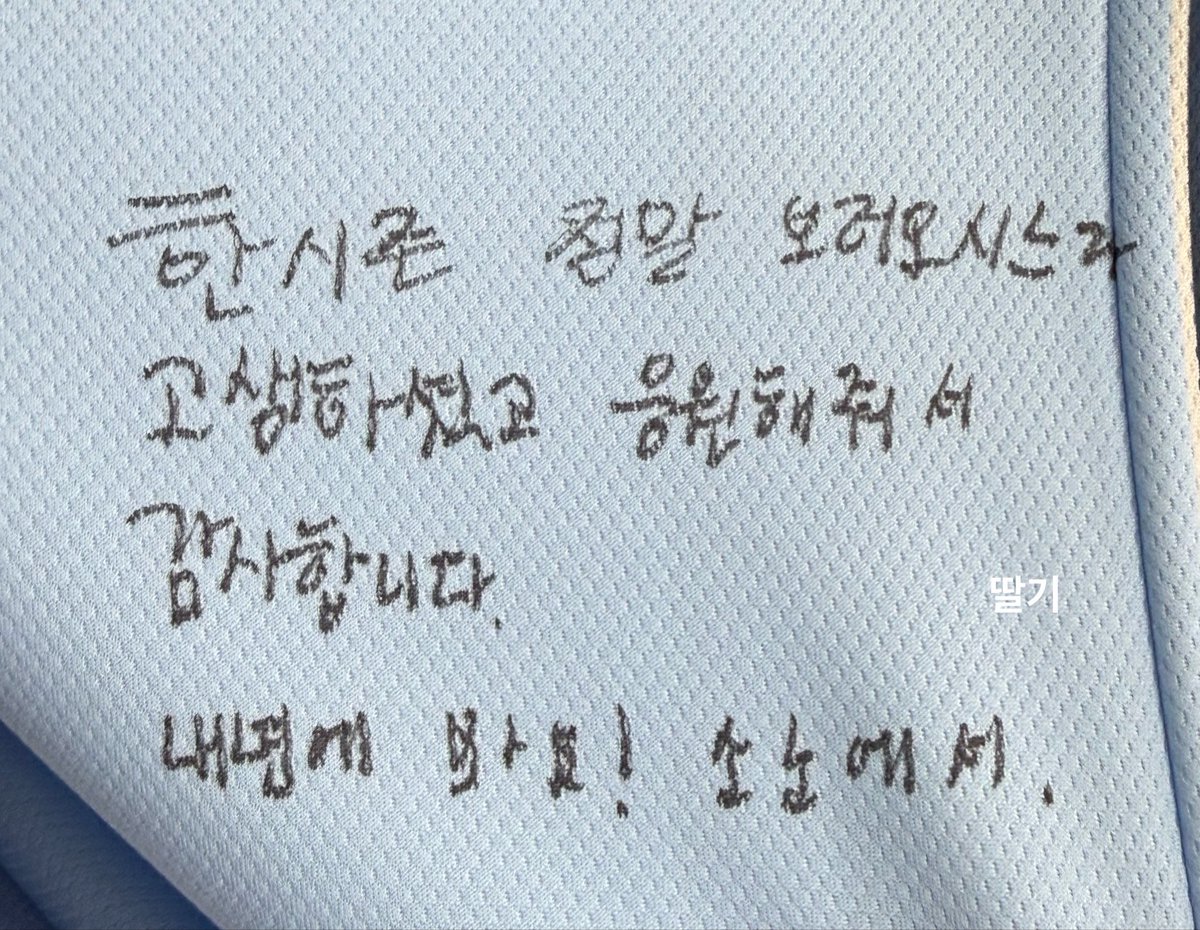 한시즌 정말 보러오시느라
고생하셨고 응원해줘서
감사합니다.
딸기
내년에 봐요! 손눈에서.